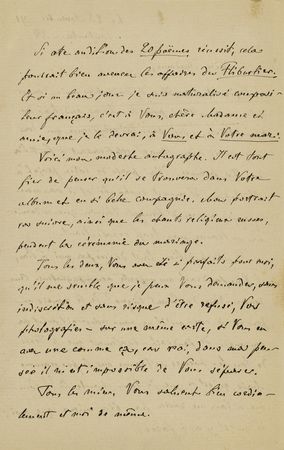 Si cette audition des 20 poèmes réussit, cela
pourrait bien avancer les affaires du Flibustier.
Et si un beau jour je suis naturalisé composi-
teur français, c'est à Vous, chère Madame et
amie, que je le devrai, à Vous, et à Votre mari.
Voici mon modeste autographe. Il est tout
fier de penser qu'il se trouvera dans Votre
album et en si belle compagnie. Mon portrait
va suivre, ainsi que les chants religieux russes,
pendant la cérémonie du mariage.
Tous les deux, Vous avez été si parfaits pour moi,
qu'il me semble que je peux Vous demander, sans
indiscrétion et sans risque d'être refusé, Vos
photografies – sur une même carte, si Vous en
avez une comme ça, car moi, dans ma pen-
sée il m'est impossible de Vous séparer.
Tous les miens Vous saluent bien cordia-
lement et moi de même.